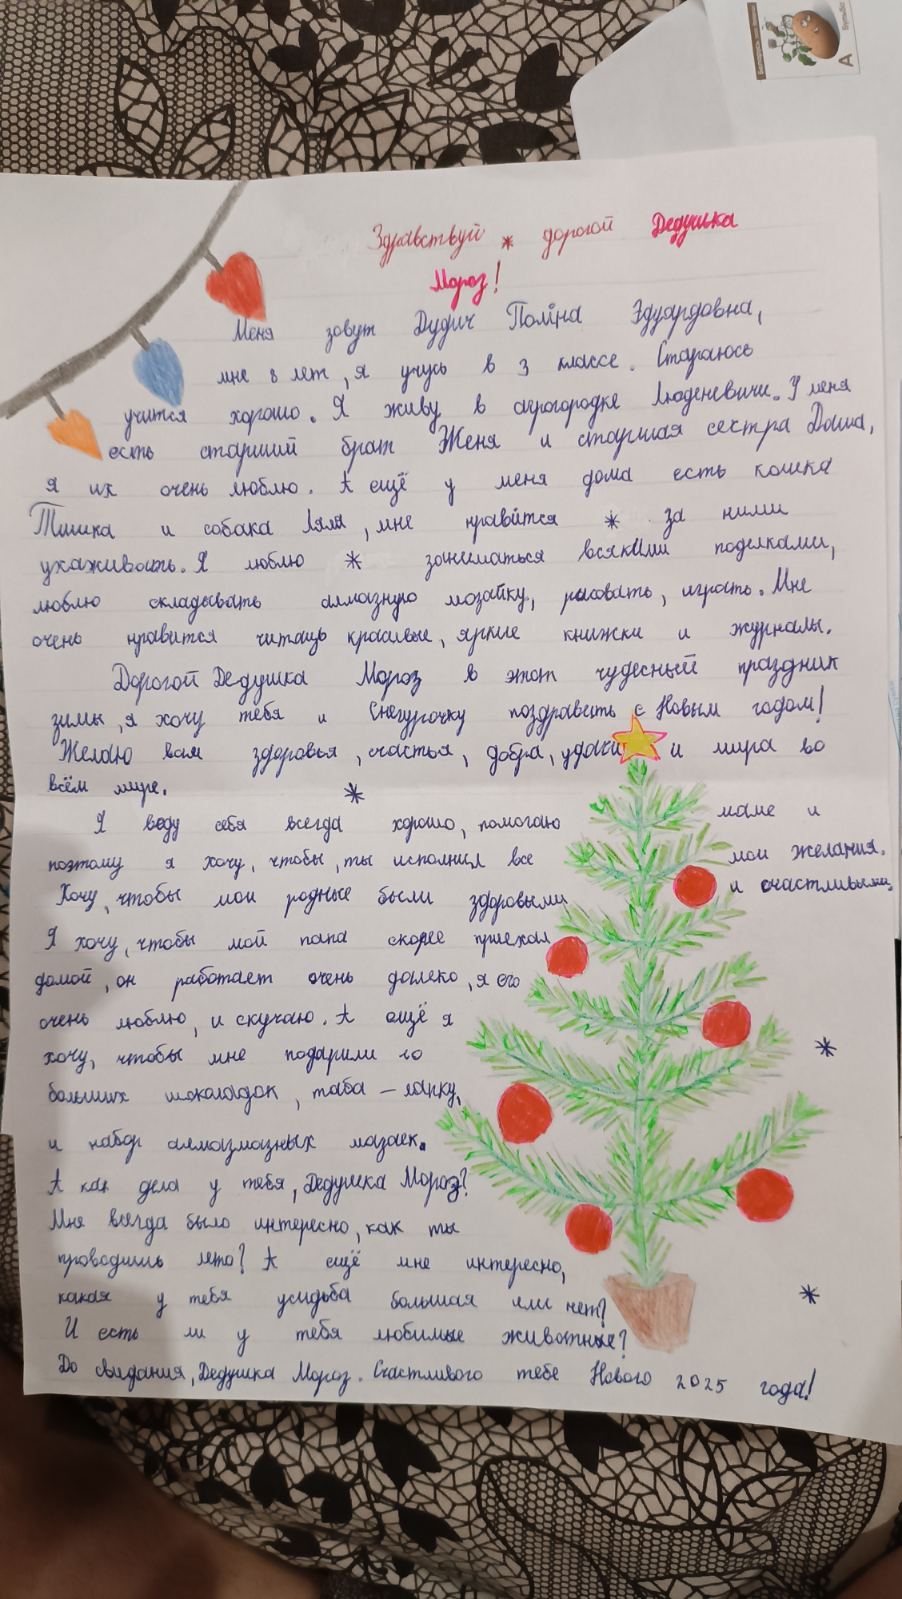 Здравствуй * дорогой Дедушка
Мороз!
Меня зовут Дудич Поліна Эдуардовна,
мне 8 лет, я учусь в 3 классе. Стараюсь
учится хорошо. Я живу в агрогородке Люденевичи. У меня
есть старший брат Женя и старшая сестра Даша,
я их очень люблю. А ещё у меня дома есть кошка
Тишка и собака Ляля, мне нравится * за ними
ухаживать. Я люблю * заниматься всякими поделками,
люблю складывать алмазную мозайку, рисовать, играть. Мне
очень нравится читать красивые, яркие книжки и журналы.
Дорогой Дедушка Мороз в этот чудесный праздник
зимы, я хочу тебя и Снегурочку поздравить с Новым годом!
Желаю вам здоровья, счастья, добра, удачи и мира во
всём мире. *
Я веду себя всегда хорошо, помогаю маме и
поэтому я хочу, чтобы, ты исполнил все мои желания.
Хочу, чтобы мои родные были здоровыми и счастливыми.
Я хочу, чтобы мой папа скорее приехал
домой, он работает очень далеко, я его
очень люблю, и скучаю. А ещё я
хочу, чтобы мне подарили 10
больших шоколадок, таба – лапку,
и набор алмазмазных мазаек.
А как дела у тебя, Дедушка Мороз?
Мне всегда было интересно, как ты
проводишь лето? А ещё мне интересно,
какая у тебя усидьба большая или нет?
И есть ли у тебя любимые животные?
До свидания, Дедушка Мороз. Счастливого тебе Нового 2025 года!
А